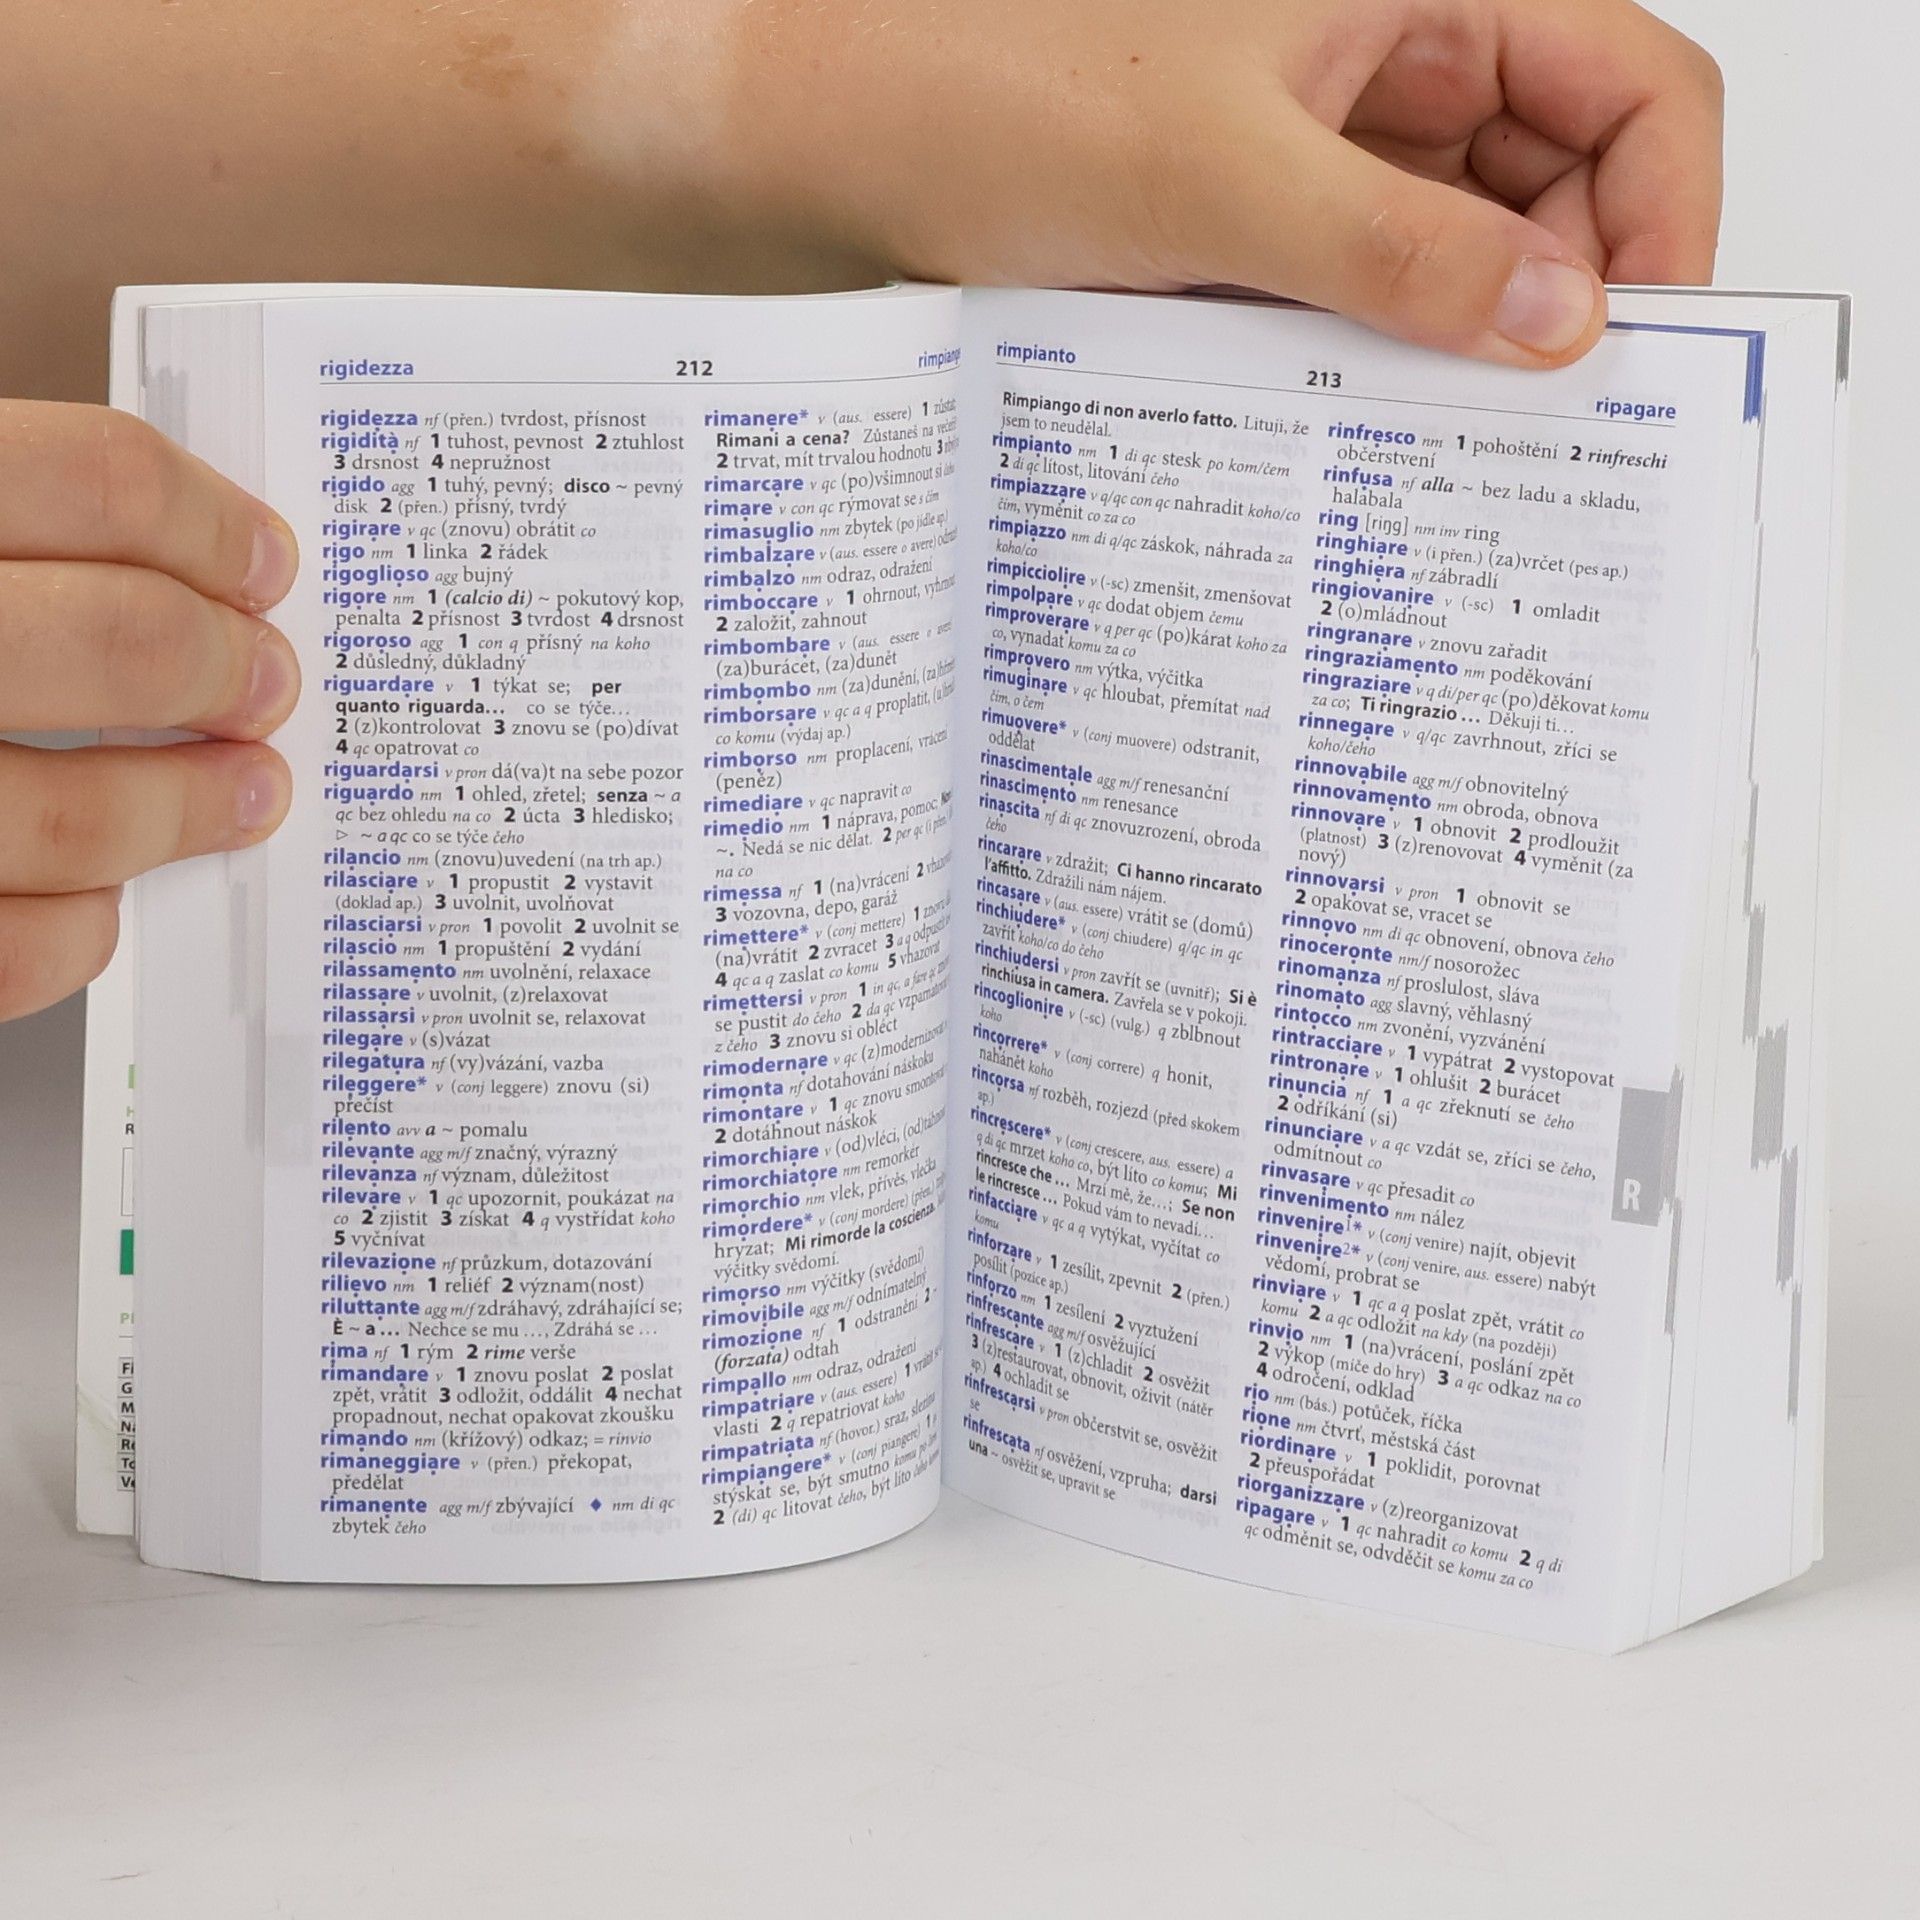 rigidezza 212
rigidezza nf (přen.) tvrdost, přísnost
rigidità nf 1 tuhost, pevnost 2 ztuhlost
3 drsnost 4 nepružnost
rigido agg 1 tuhý, pevný; disco ~ pevný
disk 2 (přen.) přísný, tvrdý
rigirare v qc (znovu) obrátit co
rigo nm 1 linka 2 řádek
rigoglioso agg bujný
rigore nm 1 (calcio di) ~ pokutový kop,
penalta 2 přísnost 3 tvrdost 4 drsnost
rigoroso agg 1 con q přísný na koho
2 důsledný, důkladný
riguardare v 1 týkat se; per
quanto riguarda… co se týče…
2 (z)kontrolovat 3 znovu se (po)dívat
4 qc opatrovat co
riguardarsi v pron dá(va)t na sebe pozor
riguardo nm 1 ohled, zřetel; senza ~ a
qc bez ohledu na co 2 úcta 3 hledisko;
▷ ~ a qc co se týče čeho
rilancio nm (znovu)uvedení (na trh ap.)
rilasciare v 1 propustit 2 vystavit
(doklad ap.) 3 uvolnit, uvolňovat
rilasciarsi v pron 1 povolit 2 uvolnit se
rilascio nm 1 propuštění 2 vydání
rilassamento nm uvolnění, relaxace
rilassare v uvolnit, (z)relaxovat
rilassarsi v pron uvolnit se, relaxovat
rilegare v (s)vázat
rilegatura nf (vy)vázání, vazba
rileggere* v (conj leggere) znovu (si)
přečíst
rilento avv a ~ pomalu
rilevante agg m/f značný, výrazný
rilevanza nf význam, důležitost
rilevare v 1 qc upozornit, poukázat na
co 2 zjistit 3 získat 4 q vystřídat koho
5 vyčnívat
rilevazione nf průzkum, dotazování
rilievo nm 1 reliéf 2 význam(nost)
riluttante agg m/f zdráhavý, zdráhající se;
È ~ a… Nechce se mu …, Zdráhá se …
rima nf 1 rým 2 rime verše
rimandare v 1 znovu poslat 2 poslat
zpět, vrátit 3 odložit, oddálit 4 nechat
propadnout, nechat opakovat zkoušku
rimando nm (křížový) odkaz; = rinvio
rimaneggiare v (přen.) překopat,
předělat
rimanente agg m/f zbývající ◆ nm di qc
zbytek čeho
rimanere* v (aus. essere) 1
Rimani a cena? Zůstaneš na
2 trvat, mít trvalou hodnotu 3
rimarcare v qc (po)všimnout si
rimare v con qc rýmovat se s čím
rimasuglio nm zbytek (po jídle ap.)
rimbalzare v (aus. essere o avere)
rimbalzo nm odraz, odražení
rimboccare v 1 ohrnout,
2 založit, zahnout
rimbombare v (aus. essere o
(za)burácet, (za)dunět
rimbombo nm (za)dunění,
rimborsare v qc a q proplatit,
co komu (výdaj ap.)
rimborso nm proplacení,
(peněz)
rimediare v qc napravit co
rimedio nm 1 náprava, pomoc;
~. Nedá se nic dělat. 2 per qc
na co
rimessa nf 1 (na)vrácení 2
3 vozovna, depo, garáž
rimettere* v (conj mettere) 1
(na)vrátit 2 zvracet 3 a q
4 qc a q zaslat co komu 5 vhazovat
rimettersi v pron 1 in qc, a fare qc
se pustit do čeho 2 da qc
z čeho 3 znovu si obléct
rimodernare v qc
rimonta nf dotahování náskoku
rimontare v 1 qc znovu
2 dotáhnout náskok
rimorchiare v (od)vléci,
rimorchiatore nm remorkér
rimorchio nm vlek, přívěs, vlečka
rimordere* v (conj mordere) (přen.)
hryzat; Mi rimorde la coscienza.
výčitky svědomí.
rimorso nm výčitky (svědomí)
rimovibile agg m/f odnímatelný
rimozione nf 1 odstranění 2 ~
(forzata) odtah
rimpallo nm odraz, odražení
rimpatriare v (aus. essere) 1
vlasti 2 q repatriovat koho
rimpatriata nf (hovor.) sraz,
rimpiangere* v (conj piangere) 1
stýskat se, být smutno
2 (di) qc litovat čeho, být líto
rimpianto 213 ripagare
Rimpiango di non averlo fatto. Lituji, že
jsem to neudělal.
rimpianto nm 1 di qc stesk po kom/čem
2 di qc lítost, litování čeho
rimpiazzare v q/qc con qc nahradit koho/co
čím, vyměnit co za co
rimpiazzo nm di q/qc záskok, náhrada za
koho/co
rimpicciolire v (-sc) zmenšit, zmenšovat
rimpolpare v qc dodat objem čemu
rimproverare v q per qc (po)kárat koho za
co, vynadat komu za co
rimprovero nm výtka, výčitka
rimuginare v qc hloubat, přemítat nad
čím, o čem
rimuovere* v (conj muovere) odstranit,
oddělat
rinascimentale agg m/f renesanční
rinascimento nm renesance
rinascita nf di qc znovuzrození, obroda
čeho
rincarare v zdražit; Ci hanno rincarato
l'affitto. Zdražili nám nájem.
rincasare v (aus. essere) vrátit se (domů)
rinchiudere* v (conj chiudere) q/qc in qc
zavřít koho/co do čeho
rinchiudersi v pron zavřít se (uvnitř); Si è
rinchiusa in camera. Zavřela se v pokoji.
rincoglionire v (-sc) (vulg.) q zblbnout
koho
rincorrere* v (conj correre) q honit,
nahánět koho
rincorsa nf rozběh, rozjezd (před skokem
ap.)
rincrescere* v (conj crescere, aus. essere) a
q di qc mrzet koho co, být líto co komu; Mi
rincresce che … Mrzí mě, že…; Se non
le rincresce … Pokud vám to nevadí…
rinfacciare v qc a q vytýkat, vyčítat co
komu
rinforzare v 1 zesílit, zpevnit 2 (přen.)
posílit (pozice ap.)
rinforzo nm 1 zesílení 2 vyztužení
rinfrescante agg m/f osvěžující
rinfrescare v 1 (z)chladit 2 osvěžit
3 (z)restaurovat, obnovit, oživit (nátěr
ap.) 4 ochladit se
rinfrescarsi v pron občerstvit se, osvěžit
se
rinfrescata nf osvěžení, vzpruha; darsi
una ~ osvěžit se, upravit se
rinfresco nm 1 pohoštění 2 rinfreschi
občerstvení
rinfusa nf alla ~ bez ladu a skladu,
halabala
ring [riŋg] nm inv ring
ringhiare v (i přen.) (za)vrčet (pes ap.)
ringhiera nf zábradlí
ringiovanire v (-sc) 1 omladit
2 (o)mládnout
ringranare v znovu zařadit
ringraziamento nm poděkování
ringraziare v q di/per qc (po)děkovat komu
za co; Ti ringrazio … Děkuji ti…
rinnegare v q/qc zavrhnout, zříci se
koho/čeho
rinnovabile agg m/f obnovitelný
rinnovamento nm obroda, obnova
rinnovare v 1 obnovit 2 prodloužit
(platnost) 3 (z)renovovat 4 vyměnit (za
nový)
rinnovarsi v pron 1 obnovit se
2 opakovat se, vracet se
rinnovo nm di qc obnovení, obnova čeho
rinoceronte nm/f nosorožec
rinomanza nf proslulost, sláva
rinomato agg slavný, věhlasný
rintocco nm zvonění, vyzvánění
rintracciare v 1 vypátrat 2 vystopovat
rintronare v 1 ohlušit 2 burácet
rinuncia nf 1 a qc zřeknutí se čeho
2 odříkání (si)
rinunciare v a qc vzdát se, zříci se čeho,
odmítnout co
rinvasare v qc přesadit co
rinvenimento nm nález
rinvenire1* v (conj venire) najít, objevit
rinvenire2* v (conj venire, aus. essere) nabýt
vědomí, probrat se
rinviare v 1 qc a q poslat zpět, vrátit co
komu 2 a qc odložit na kdy (na později)
rinvio nm 1 (na)vrácení, poslání zpět
2 výkop (míče do hry) 3 a qc odkaz na co
4 odročení, odklad
rio nm (bás.) potůček, říčka
rione nm čtvrť, městská část
riordinare v 1 poklidit, porovnat
2 přeuspořádat
riorganizzare v (z)reorganizovat
ripagare v 1 qc nahradit co komu 2 q di
qc odměnit se, odvděčit se komu za co
R